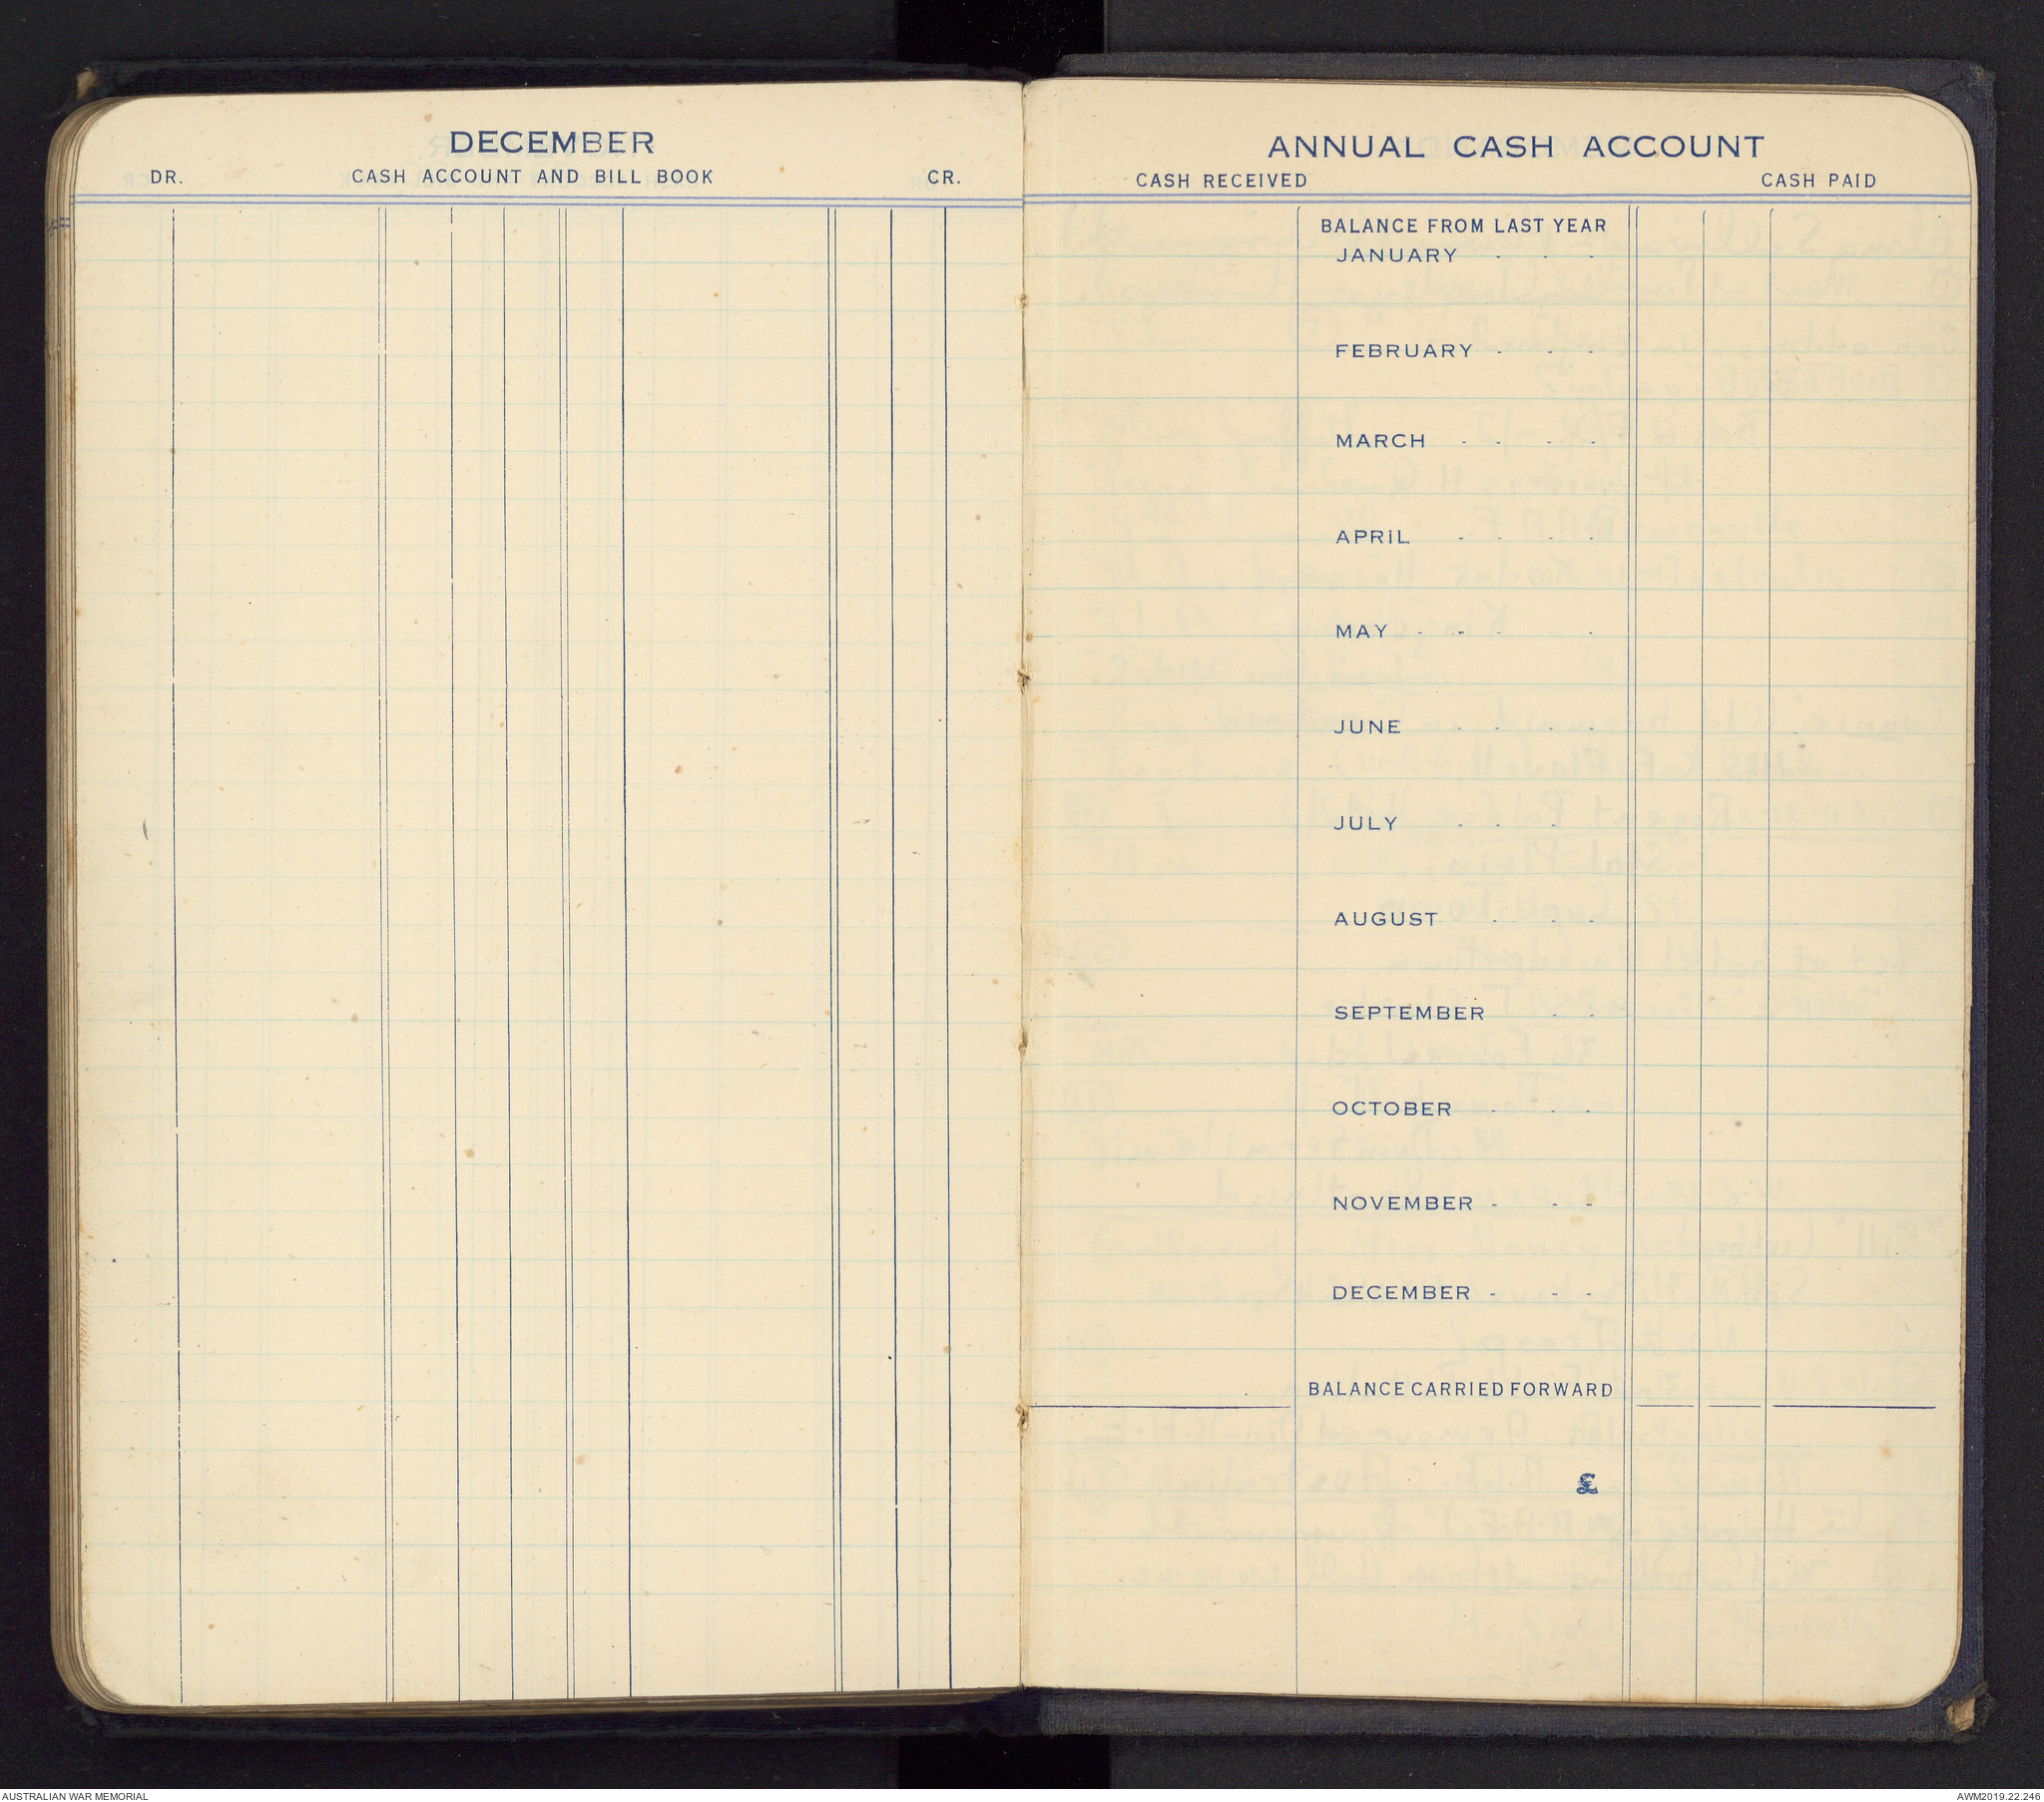 DECEMBER
DR. CASH ACCOUNT AND BILL BOOK CR.
ANNUAL CASH ACCOUNT
CASH RECEIVED CASH PAID
BALANCE FROM LAST YEAR
JANUARY - - -
FEBRUARY - - -
MARCH - - - -
APRIL - - - -
MAY - - - -
JUNE - - - -
JULY - - -
AUGUST - - -
SEPTEMBER - -
OCTOBER - - -
NOVEMBER - - -
DECEMBER - - -
BALANCE CARRIED FORWARD
£
AUSTRALIAN WAR MEMORIAL
AWM2019.22.246